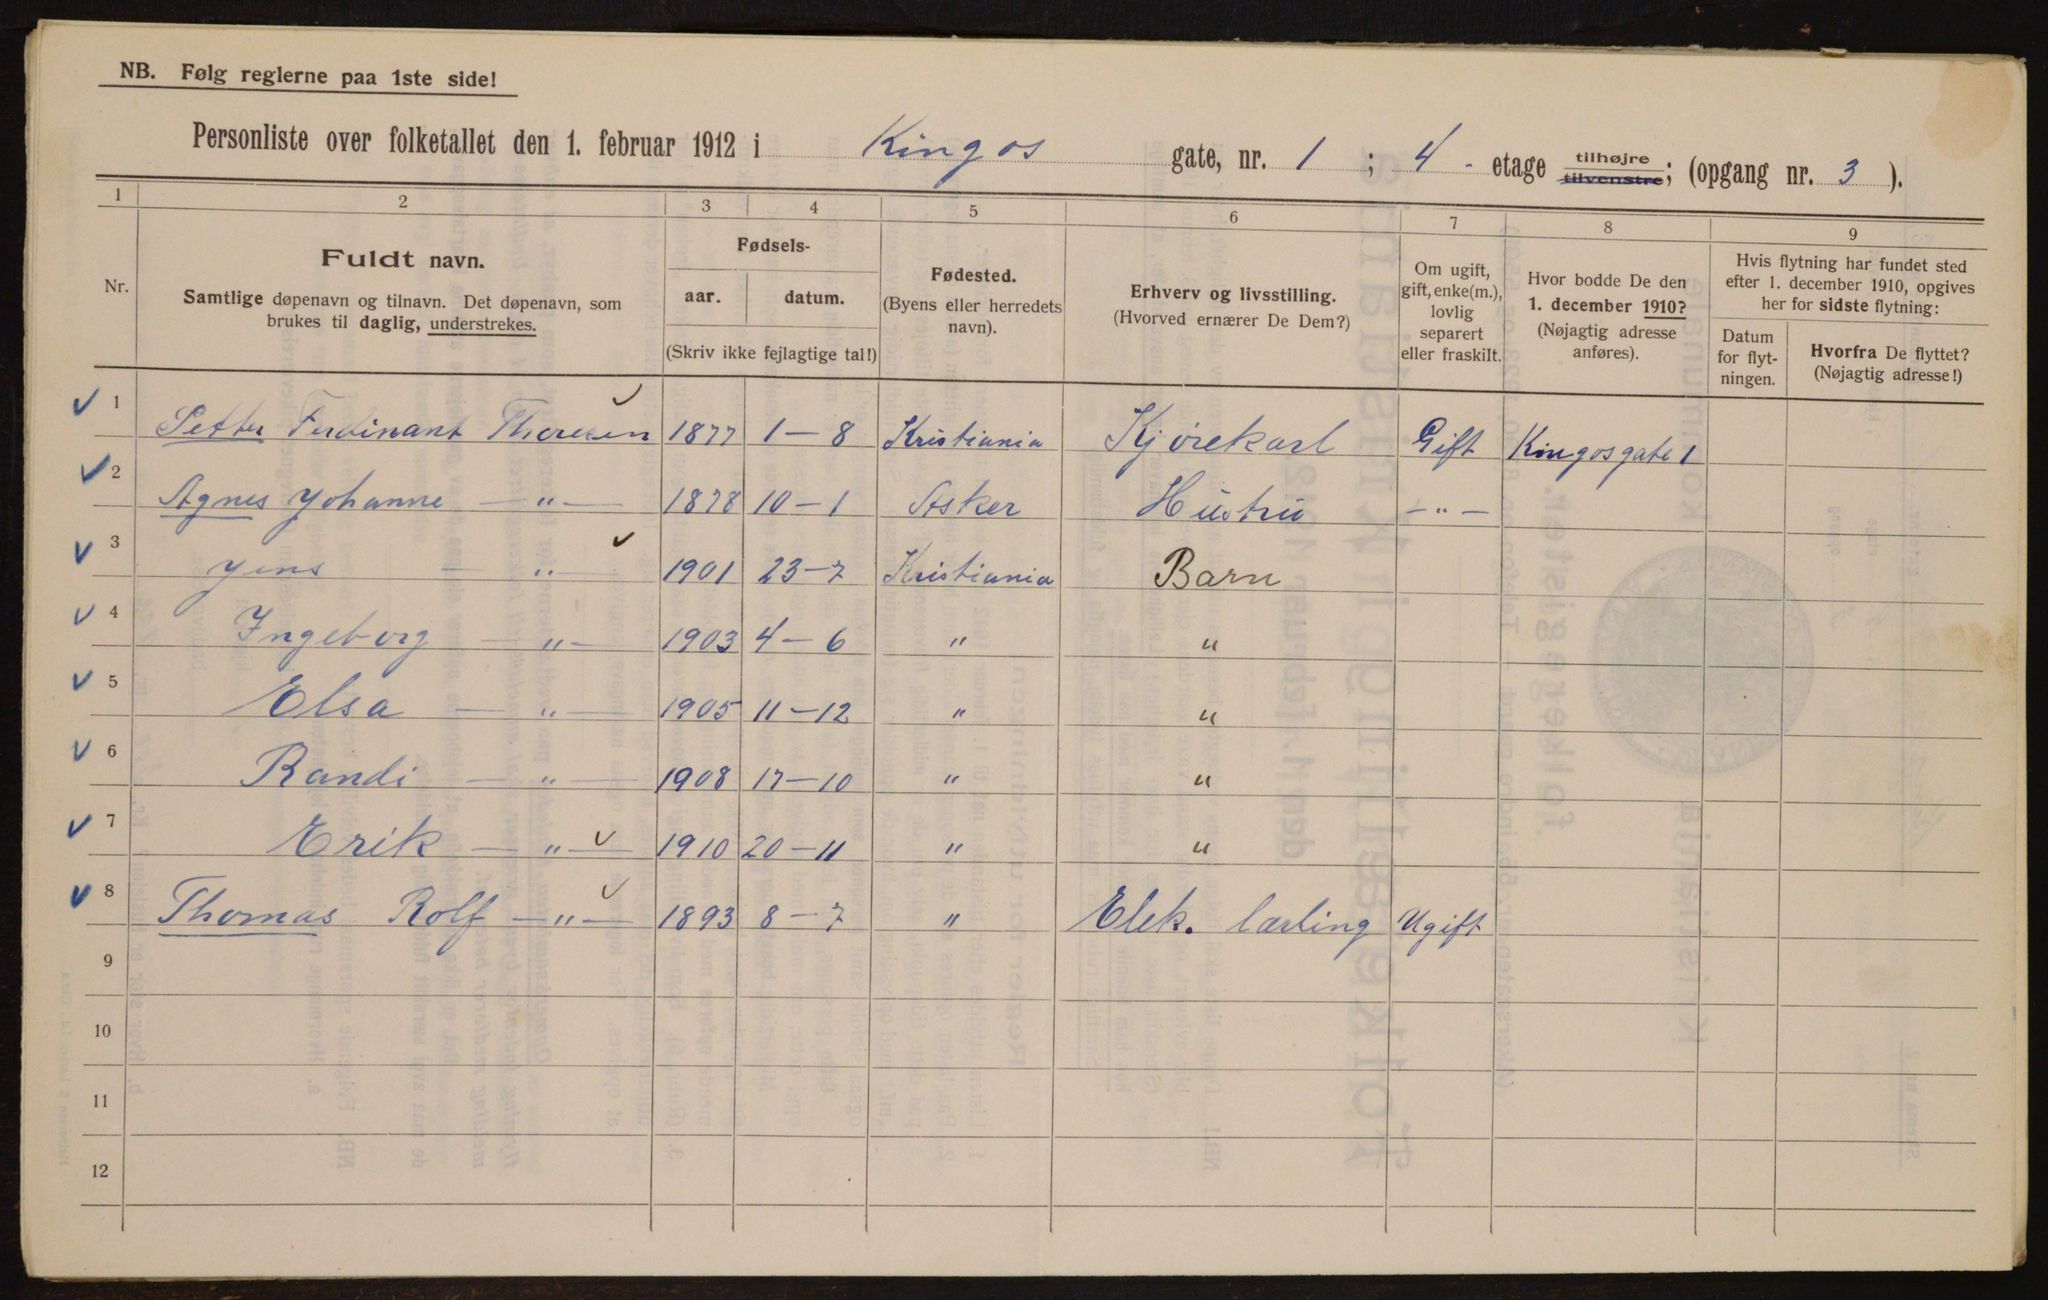 NB. Følg reglerne paa 1ste side!
Personliste over folketallet den 1. februar 1912 i Kingos gate, nr. 1 ; 4 - etage tilhøjre tilvenstre; (opgang nr. 3 ).
1 2 3 4 5 6 7 8 9
Nr. Fuldt navn. Samtlige døpenavn og tilnavn. Det døpenavn, som brukes til daglig, understrekes.
Fødsels- aar. datum. (Skriv ikke fejlagtige tal!)
Fødested. (Byens eller herredets navn).
Erhverv og livsstilling. (Hvorved ernærer De Dem?)
Om ugift, gift, enke(m.), lovlig separert eller fraskilt.
Hvor bodde De den 1. december 1910? (Nøjagtig adresse anføres).
Hvis flytning har fundet sted efter 1. december 1910, opgives her for sidste flytning:
Datum for flyt-ningen. Hvorfra De flyttet? (Nøjagtig adresse!)
1 Petter Ferdinant Thoresen 1877 1-8 Kristiania Kjørekarl Gift Kingosgate 1
2 Agnes Johanne — " — 1878 10-1 Asker Hustru - " -
3 Jens — " — 1901 23-7 Kristiania Barn
4 Ingeborg — " — 1903 4-6 " "
5 Elsa — " — 1905 11-12 " "
6 Randi — " — 1908 17-10 " "
7 Erik — " — 1910 20-11 " "
8 Thomas Rolf — " — 1893 8-7 " Elek. lærling Ugift
9
10
11
12